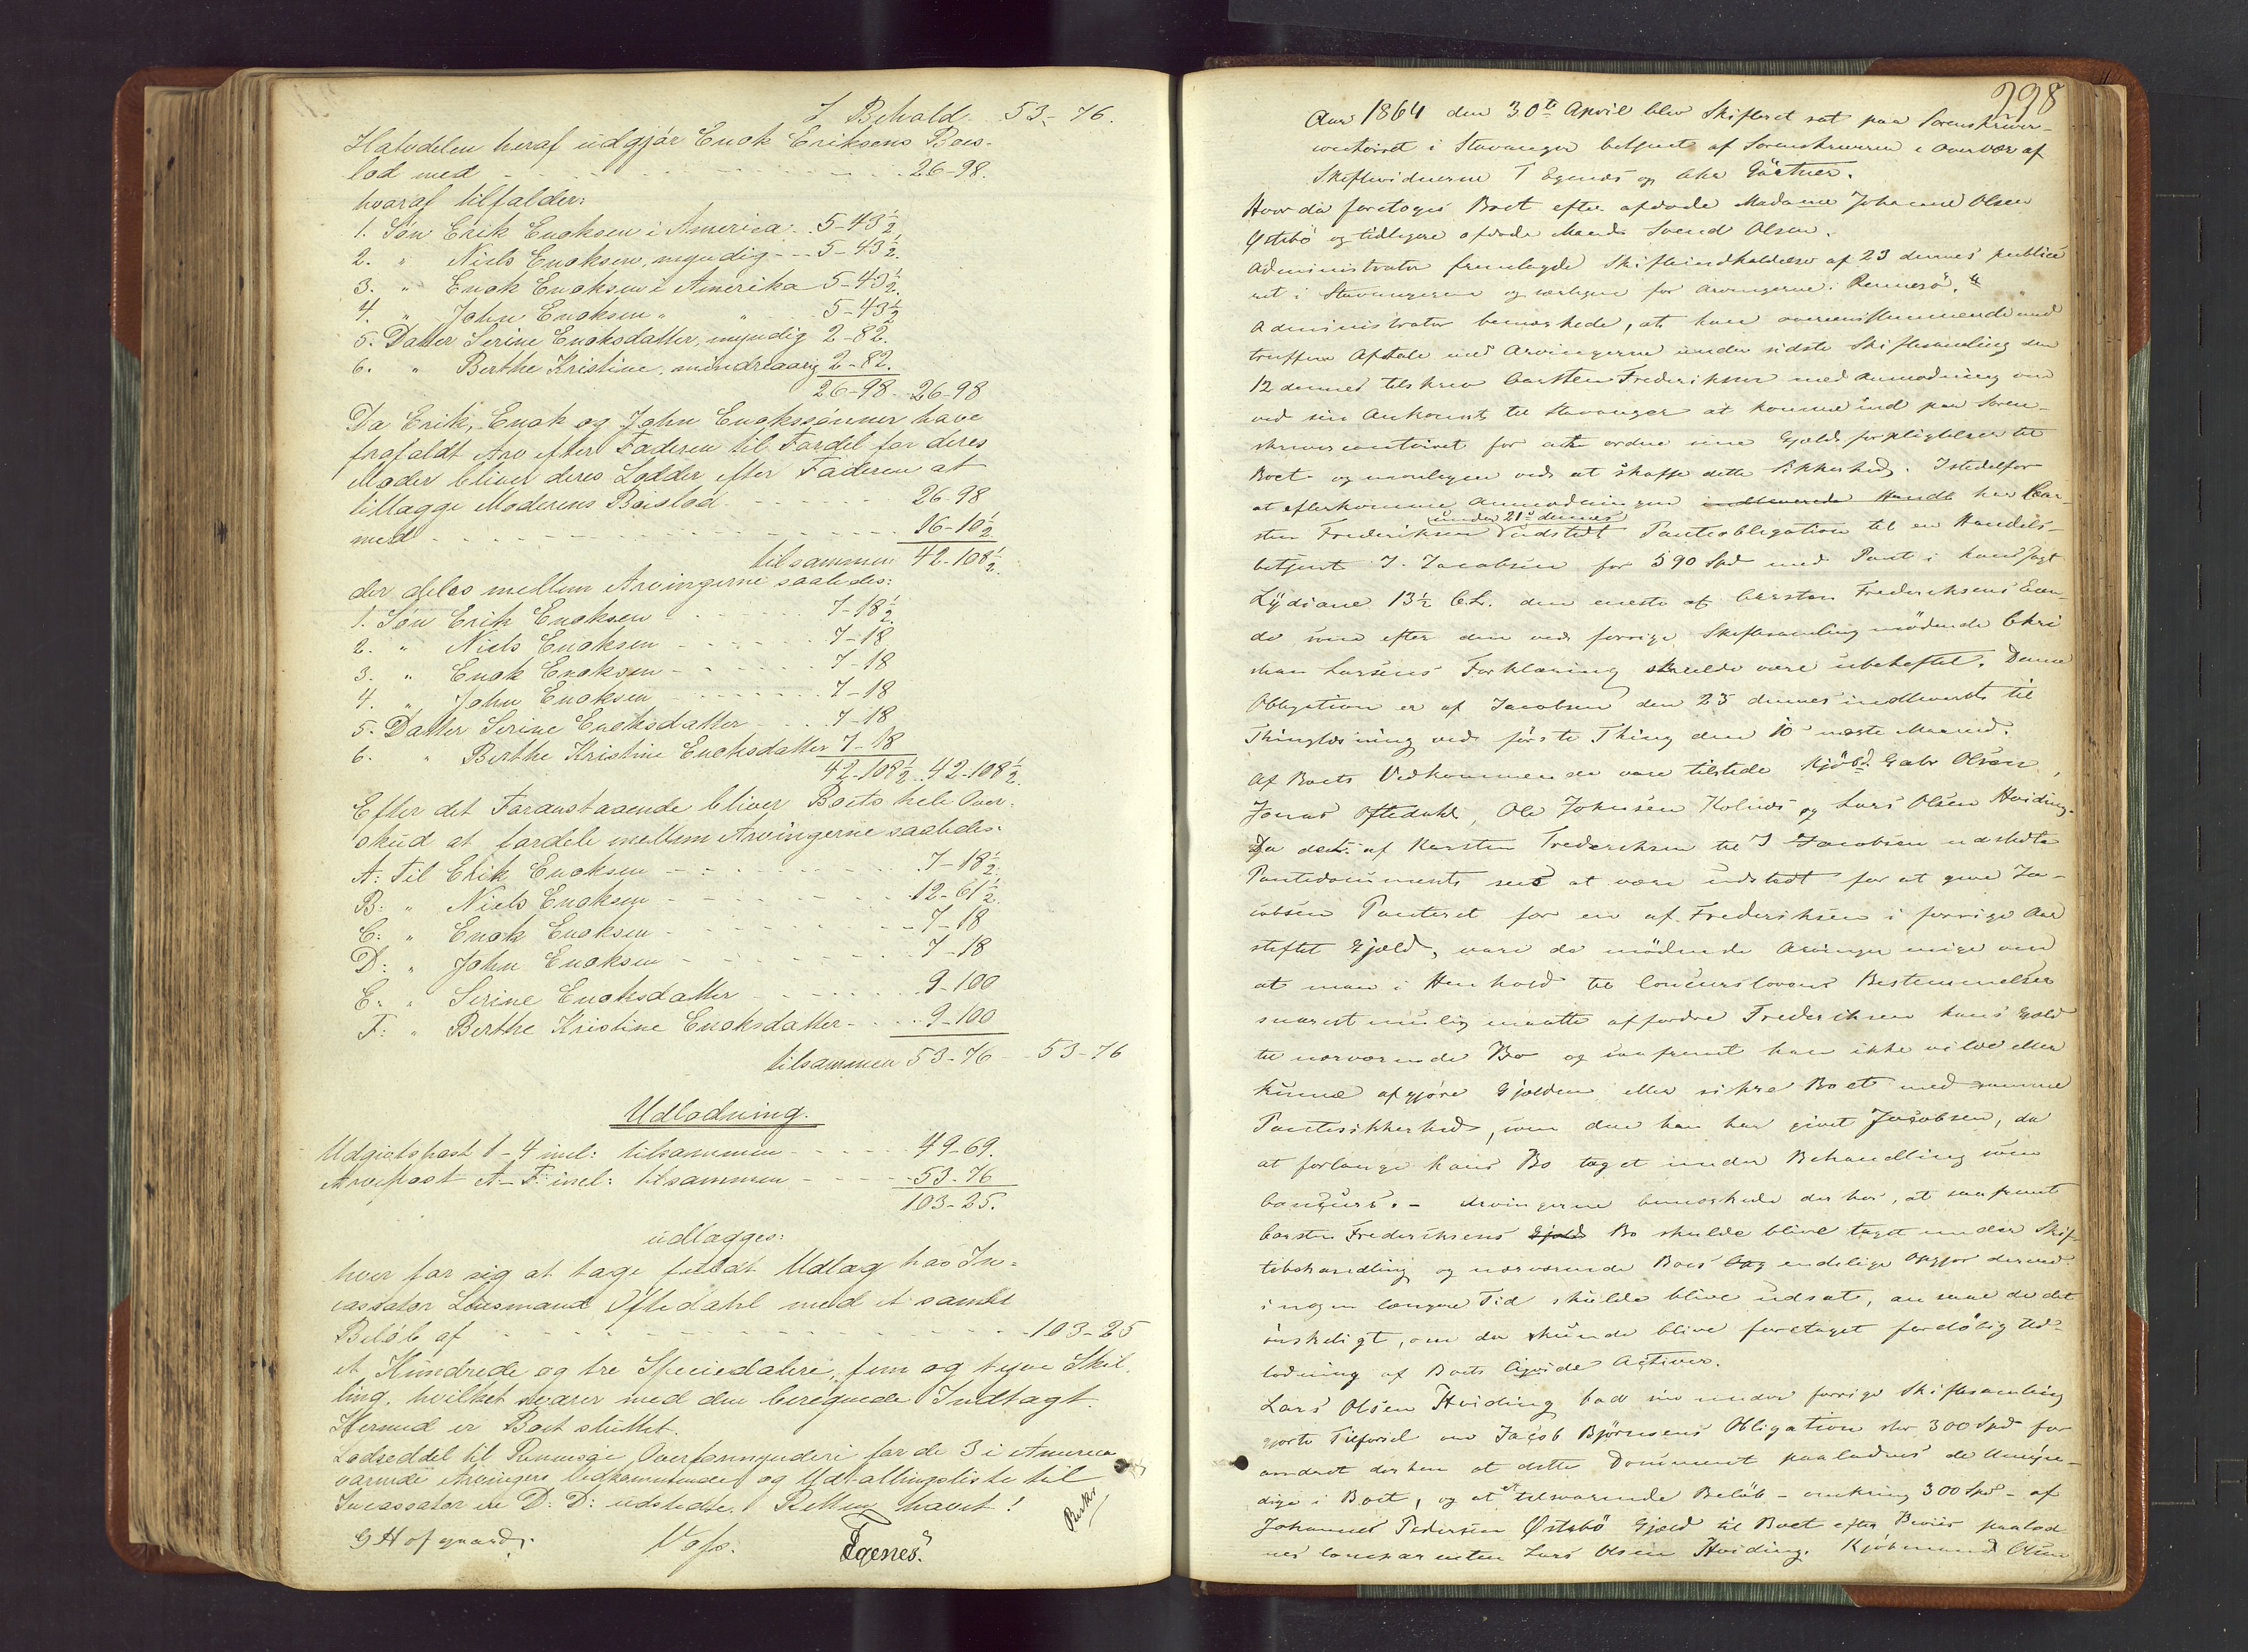 I Behold 53-76.
Halvdelen heraf udgjør Enok Eriksens Boes-
lod med 26-98.
hvoraf tilfalder:
1. Søn Erik Enoksen i America 5-43½
2. " Niels Enoksen, myndig 5-43½.
3. " Enok Enoksen i Amerika 5-43½.
4. " John Enoksen " " 5-43½
5. Datter Serine Enoksdatter, myndig 2-82.
6. " Berthe Kristine, mindreaarig 2-82.
26-98 26-98
Da Erik, Enok og John Enokssønner have
frafaldt Arv efter Faderen til Fordel for deres
Moder bliver deres Lodder efter Faderen at
tillægge Moderens Boeslod 26-98
med 16-10½
tilsammen 42-108½.
der deles mellem Arvingerne saaledes:
1. Søn Erik Enoksen 7-18½
2. " Niels Enoksen 7-18
3. " Enok Enoksen 7-18
4. " John Enoksen 7-18
5. Datter Serine Enoksdatter 7-18
6. " Berthe Kristine Enoksdatter 7-18
42-108½ 42-108½.
Efter det Foranstaaende bliver Boets hele Over-
skud at fordele mellem Arvingerne saaledes:
A: Til Erik Enoksen 7-18½.
B: " Niels Enoksen 12-61½.
C: " Enok Enoksen 7-18
D: " John Enoksen 7-18
E: " Serine Enoksdatter 9-100
F: " Berthe Kristine Enoksdatter 9-100
tilsammen 53-76 53-76
Udlodning.
Udgiftspost 1-4 incl: tilsammen 49-69.
Arvepost A-F incl: tilsammen 53-76
103-25.
udlægges:
hver for sig at tage fuldt Udlæg hos In-
cassator Lensmand Oftedahl med et samlet
Beløb af 103-25
et Hundrede og tre Speciedalere, fem og tyve Skil-
ling, hvilket svarer med den beregnede Indtægt.
Hermed er Boet sluttet.
Lodseddel til Rennesøe Overformynderi for de 3 i America
værende Arvingers Vedkommende og Udtallingsliste til
Incassator er D: D: udstedte. Retten hævet!
G Hofgaard. Egenes.
298
Aar 1864 den 30te April blev Skifteret sat paa Sorenskriver-
contoiret i Stavanger betjent af Sorenskriveren i Overvær af
Skiftevidnerne T Egenes og Gärtner.
Hvor da foretoges Boet efter afdøde Madame Johanne Olsen
Østebø og tidligere afdøde Mand Svend Olsen.
Administrator fremlagde Skifteindkaldelse af 23 dennes publice-
ret i Stavangeren og særligen for Arvingerne i Rennesø.
Administrator bemærkede, at han overeensstemmende med
truffen Aftale med Arvingerne under sidste Skiftesamling den
12 dennes tilskrev Carsten Frederiksen med Anmodning om
ved sin Ankomst til Stavanger at komme ind paa Soren-
skrivercontoiret for at ordne sine Gjælds forpligtelser til
Boet og navnligen ved at skaffe dette Sikkerhed. Istedetfor
at efterkomme Anmodningen har Car-
sten Frederiksen under 21de dennes udstedt Panteobligation til en Handels-
betjent J. Jacobsen for 590 Spd med Pant i hans Jagt
Lydiane 13½ C.L. den eneste af Carsten Frederiksens Eien-
de som efter den ved forrige Skiftesamling mødende Chri
stian Larsens Forklaring skulde være ubeheftet. Denne
Obligation er af Jacobsen den 25 dennes indleveret til
Thinglæsning ved første Thing den 10 næste Maaned.
Af Boets Vedkommende vare tilstede Kjøbmd. Gabr Olsen,
Jonas Oftedahl, Ole Johnsen Kolnes og Lars Olsen Hviding.
Da det af Karsten Frederiksen til J Jacobsen udstedte
Pantedocument sees at være udstedt for at give Ja-
cobsen Panteret for en af Frederiksen i forrige Aar
stiftet Gjæld, vare de mødende Arvinger enige om
at man i Henhold til Concurslovens Bestemmelser
snarest mulig maatte affordre Frederiksen hans Gjæld
til nærværende Bo og saafremt han ikke vilde eller
kunne afgjøre Gjælden eller sikre Boet med samme
Pantesikkerhed, som den han har givet Jacobsen, da
at forlange hans Bo taget under Behandling som
Concurs. - Arvingerne bemærkede derhos, at saafremt
Carsten Frederiksens Gjæld Bo skulde blive taget under Skif-
tebehandling og nærværende Boes endelige Opgjør derved
i nogen længere Tid skulde blive udsat, an saae de det
ønskeligt, om der kunde blive foretaget foreløbig Ud-
lodning af Boets liqvide Activer.
Lars Olsen Hviding bad sin under forrige Skiftesamling
gjorte Tilførsel om Jacob Bjørnsens Obligation stor 300 Spd for
andret derhen at dette Document paalodnes de Umyn-
dige i Boet, og at et tilsvarende Beløb - omkring 300 Spd - af
Johannes Pedersen Østebø Gjæld til Boet efter Beviis paalod
nes Comparenten Lars Olsen Hviding. Kjøbmand Olsen